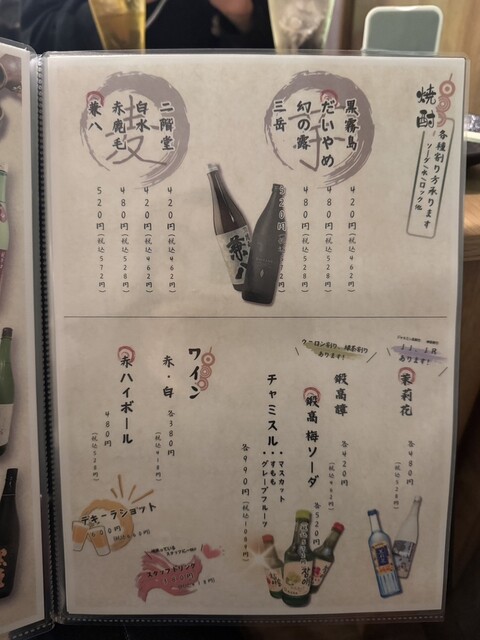 焼酎
各種割り方承ります
ソーダ/水/ロック他
芋
黒霧島
420円(税込462円)
だいやめ
480円(税込528円)
幻の露
480円(税込528円)
三岳
520円(税込572円)
麦
二階堂
420円(税込462円)
白水
420円(税込462円)
赤鹿毛
480円(税込528円)
兼八
520円(税込572円)
JJ、JR
あります!
茉莉花
各480円
(税込528円)
ウーロン割り、緑茶割り
あります!
鍛高譚
各420円
(税込462円)
鍛高梅ソーダ
各520円
チャミスル
・マスカット
・すもも
・グレープフルーツ
各990円(税込1089円)
ワイン
赤・白
各380円
(税込418円)
赤ハイボール
480円
(税込528円)
テキーラショット
600円
スタッフドリンク